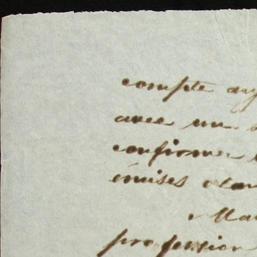 compte
avec un
confirmer
émises dans
Mai
profession